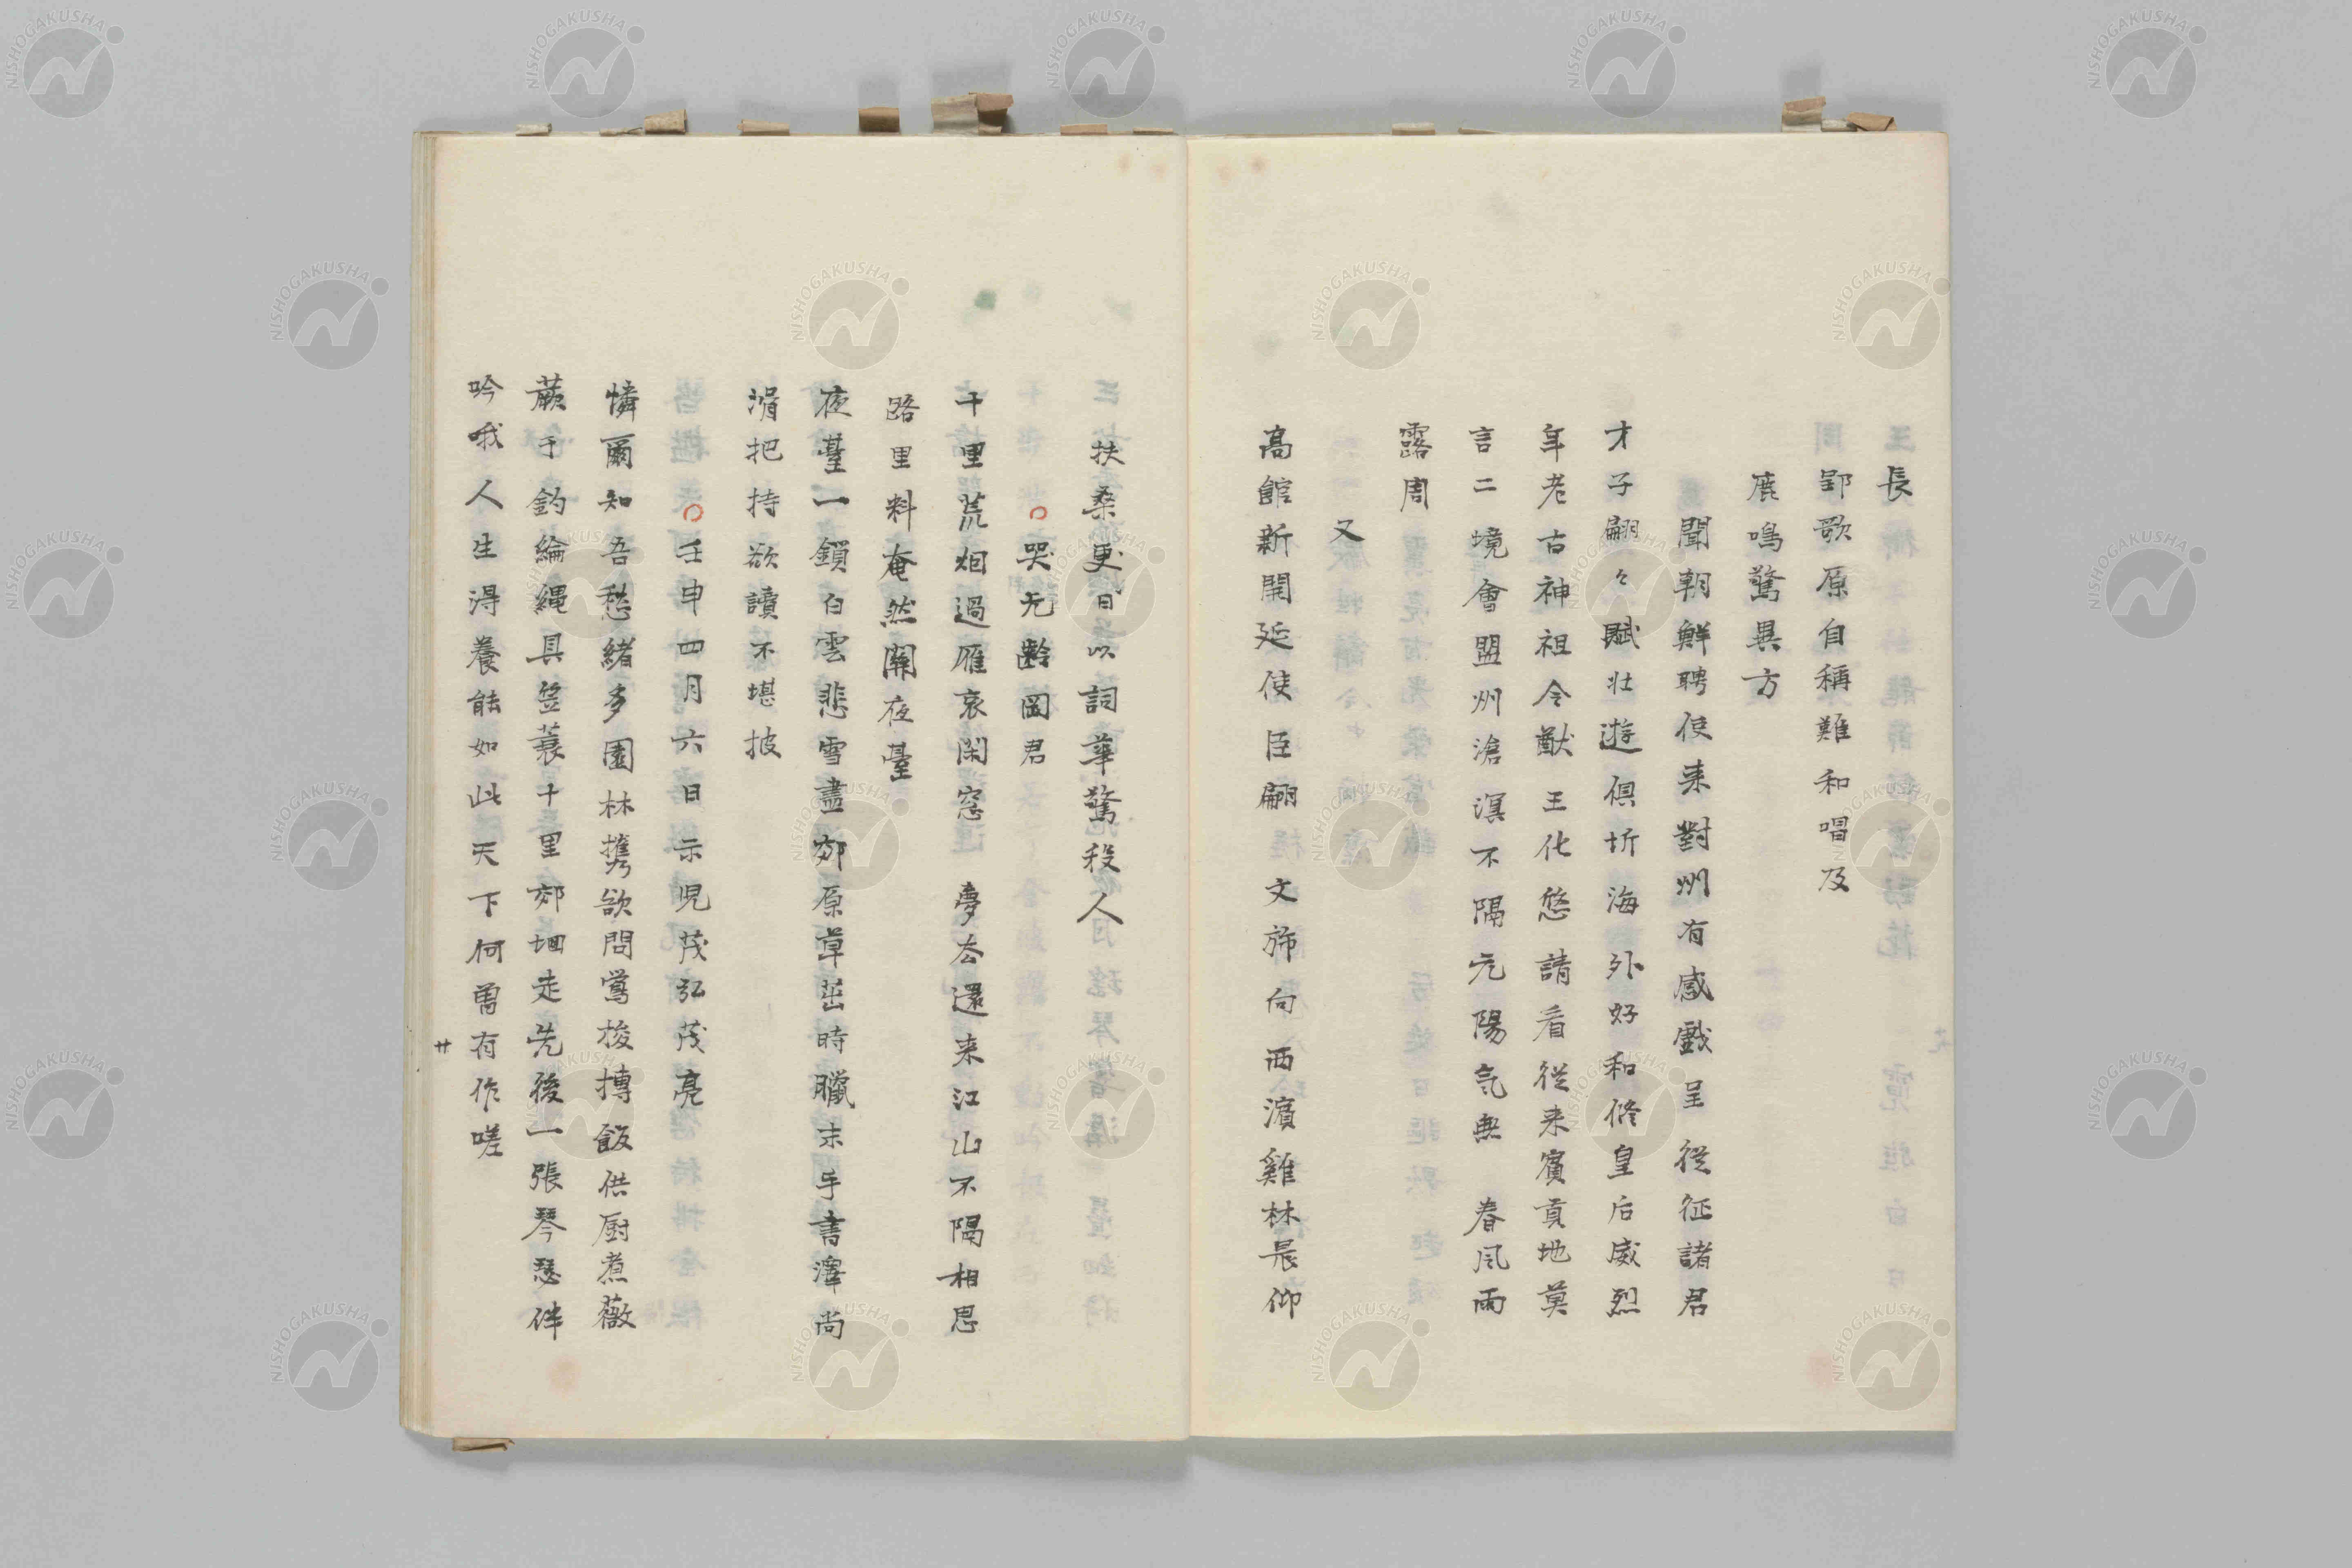 長
郢歌原自稱難和唱及
鹿鳴驚異方
聞朝鮮聘使来對州有感戲呈從征諸君
才子翩々賦壮遊俱圻海外好和修皇后威烈
年老古神祖令猷王化悠請看從来賓貢地莫
言二境會盟州滄溟不隔元陽気無春風雨
露周
又
高館新開延使臣翩文斾向西濱雞林晨仰
扶桑更日以詞華驚殺人
〇哭元齡岡君
千里荒烟過雁哀閑窓夢杳還来江山不隔相思
路里料奄然闌夜臺
夜臺一鎖白雲悲雪盡郊原草茁時臘末手書澤尚
涓把持欲讀不堪披
〇壬申四月六日示児茂弘茂亮
憐爾知吾愁緒多園林携欲問鶯梭摶飯供厨煮薇
蕨于釣綸縄具笠蓑十里郊坰走先後一張琴瑟伴
吟哦人生得養能如此天下何曽有作嗟
廿
NISHOGAKUSHA